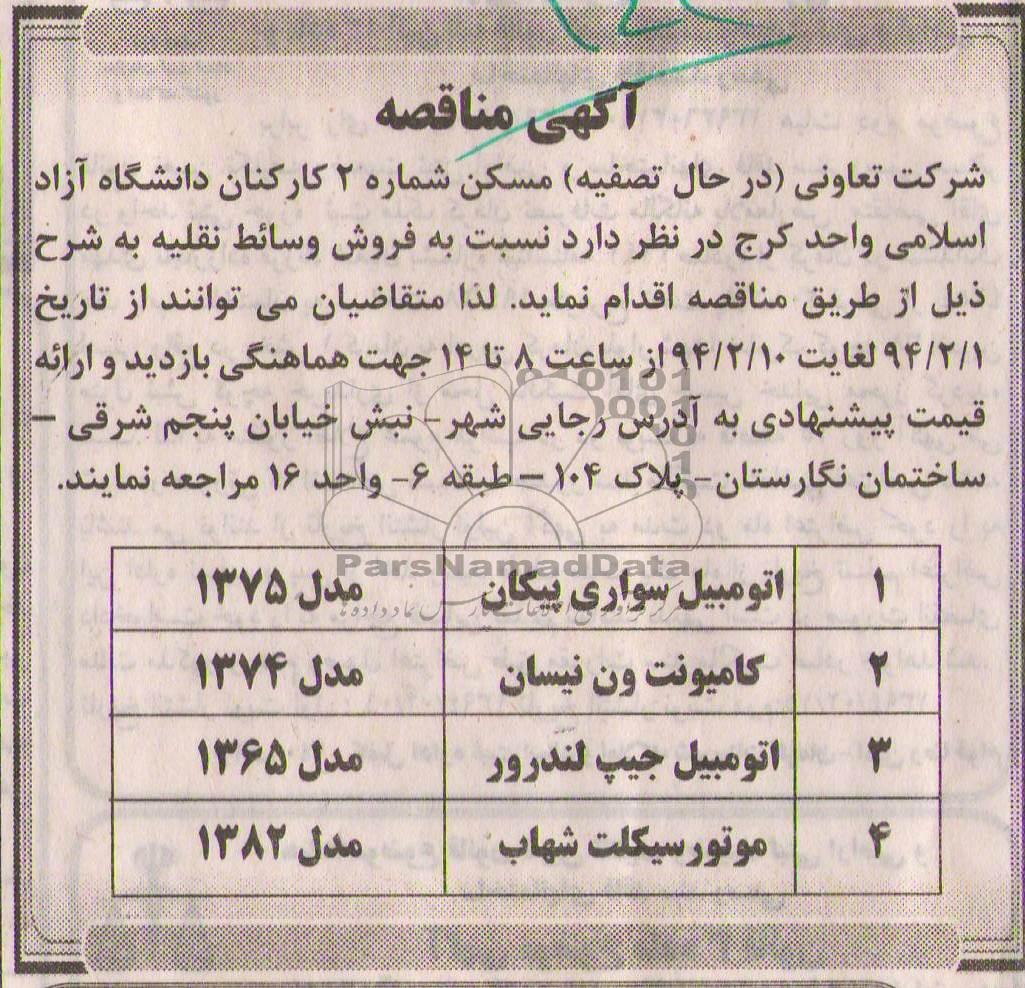 آگهی مناقصه
شرکت تعاونی (در حال تصفیه) مسکن شماره ۲ کارکنان دانشگاه آزاد
اسلامی واحد کرج در نظر دارد نسبت به فروش وسائط نقلیه به شرح
ذیل از طریق مناقصه اقدام نماید. لذا متقاضیان می توانند از تاریخ
۹۴/۲/۱ لغایت ۹۴/۲/۱۰ از ساعت ۸ تا ۱۴ جهت هماهنگی بازدید و ارائه
قیمت پیشنهادی به آدرس رجایی شهر- نبش خیابان پنجم شرقی –
ساختمان نگارستان- پلاک ۱۰۴ – طبقه ۶- واحد ۱۶ مراجعه نمایند.
۱ اتومبیل سواری پیکان مدل ۱۳۷۵
ParsNamadData
۲ کامیونت ون نیسان مدل ۱۳۷۴
۳ اتومبیل جیپ لندرور مدل ۱۳۶۵
۴ موتورسیکلت شهاب مدل ۱۳۸۲